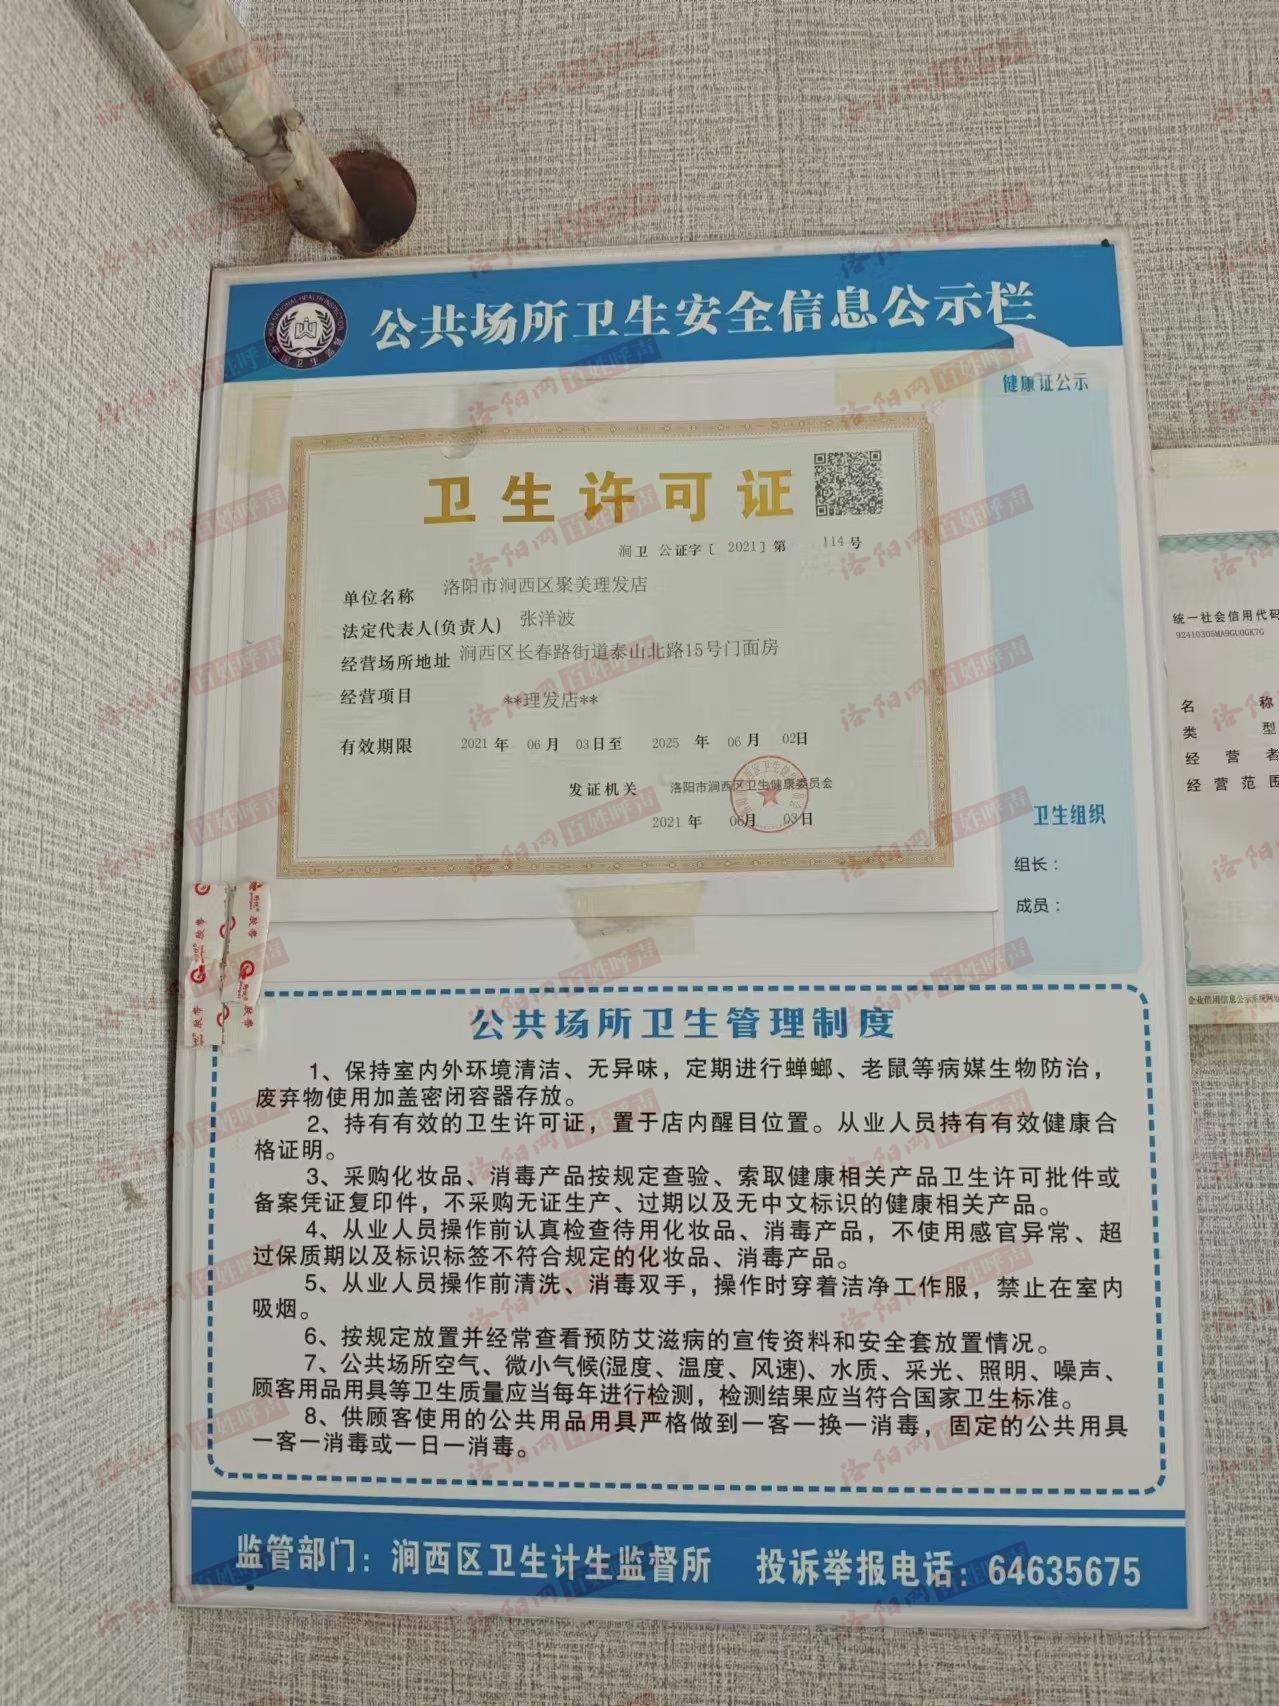 公共场所卫生安全信息公示栏
健康证公示
卫生许可证
涧卫 公证字〔 2021〕第 114号
单位名称 洛阳市涧西区聚美理发店
法定代表人(负责人) 张洋波
经营场所地址 涧西区长春路街道泰山北路15号门面房
经营项目 **理发店**
有效期限 2021 年 06 月 03日至 2025 年 06 月 02日
发证机关 洛阳市涧西区卫生健康委员会
2021 年 06月 03日
卫生组织
组长：
成员：
统一社会信用代码
92410305MA9GU0GK7G
名 称
类 型
经 营 者
经 营 范 围
企业信用信息公示系统网址
公共场所卫生管理制度
1、保持室内外环境清洁、无异味，定期进行蝉螂、老鼠等病媒生物防治，
废弃物使用加盖密闭容器存放。
2、持有有效的卫生许可证，置于店内醒目位置。从业人员持有有效健康合
格证明。
3、采购化妆品、消毒产品按规定查验、索取健康相关产品卫生许可批件或
备案凭证复印件，不采购无证生产、过期以及无中文标识的健康相关产品。
4、从业人员操作前认真检查待用化妆品、消毒产品，不使用感官异常、超
过保质期以及标识标签不符合规定的化妆品、消毒产品。
5、从业人员操作前清洗、消毒双手，操作时穿着洁净工作服，禁止在室内
吸烟。
6、按规定放置并经常查看预防艾滋病的宣传资料和安全套放置情况。
7、公共场所空气、微小气候(湿度、温度、风速)、水质、采光、照明、噪声、
顾客用品用具等卫生质量应当每年进行检测，检测结果应当符合国家卫生标准。
8、供顾客使用的公共用品用具严格做到一客一换一消毒，固定的公共用具
一客一消毒或一日一消毒。
监管部门：涧西区卫生计生监督所 投诉举报电话：64635675
洛阳网 百姓呼声